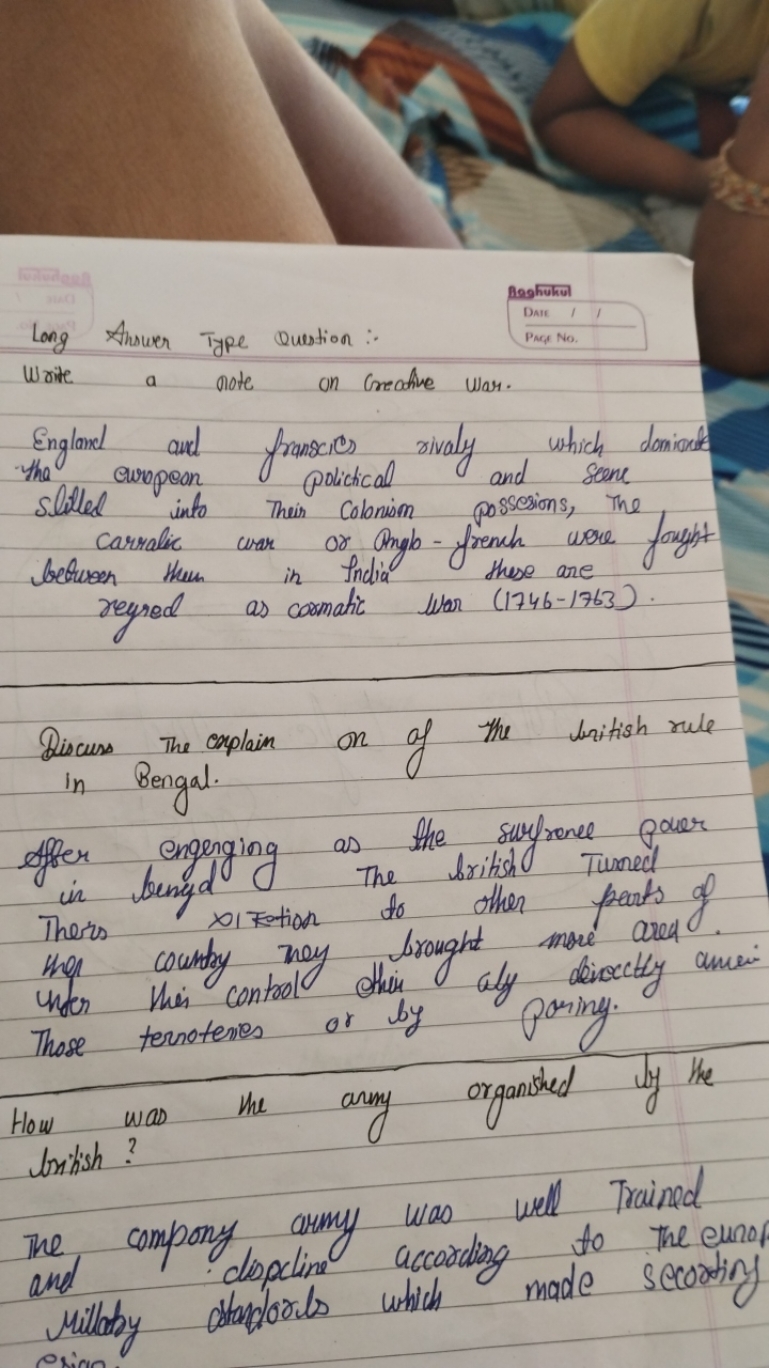 Raghukul
DATE / /
PAGE No.
Long Answer Type Question :-
Write a note on Creative War.
England and franscies rivaly which dominate
the european polictical and scene
slilled into Their Colonism possesions, The
carralic war or Anglo-french were fought
between them in India these are
reysed as cosmatic War (1746-1763).
Discuss The explain on of the british rule
in Bengal.
After engerging as the surfrenee power
in bengal The british Turned
Theirs to other pearts of
country They brought more area.
under their control directly
Those or by poring.
How was the army organished by the
british ?
The compony army was well Trained
and dispcline according to The europ
which made